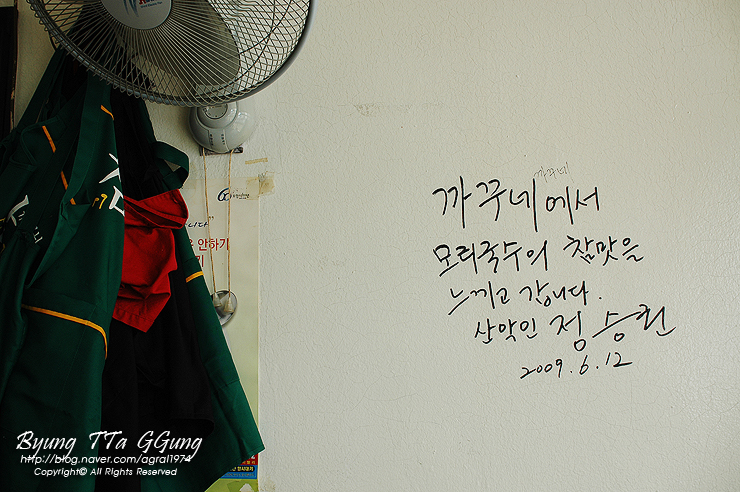 까꾸네
까꾸네에서
모리국수의 참맛을
느끼고 갑니다.
산악인 정승권
2009.6.12
니다"
안하기
기
Byung TTa GGung
http://blog.naver.com/agral1974
Copyright© All Rights Reserved